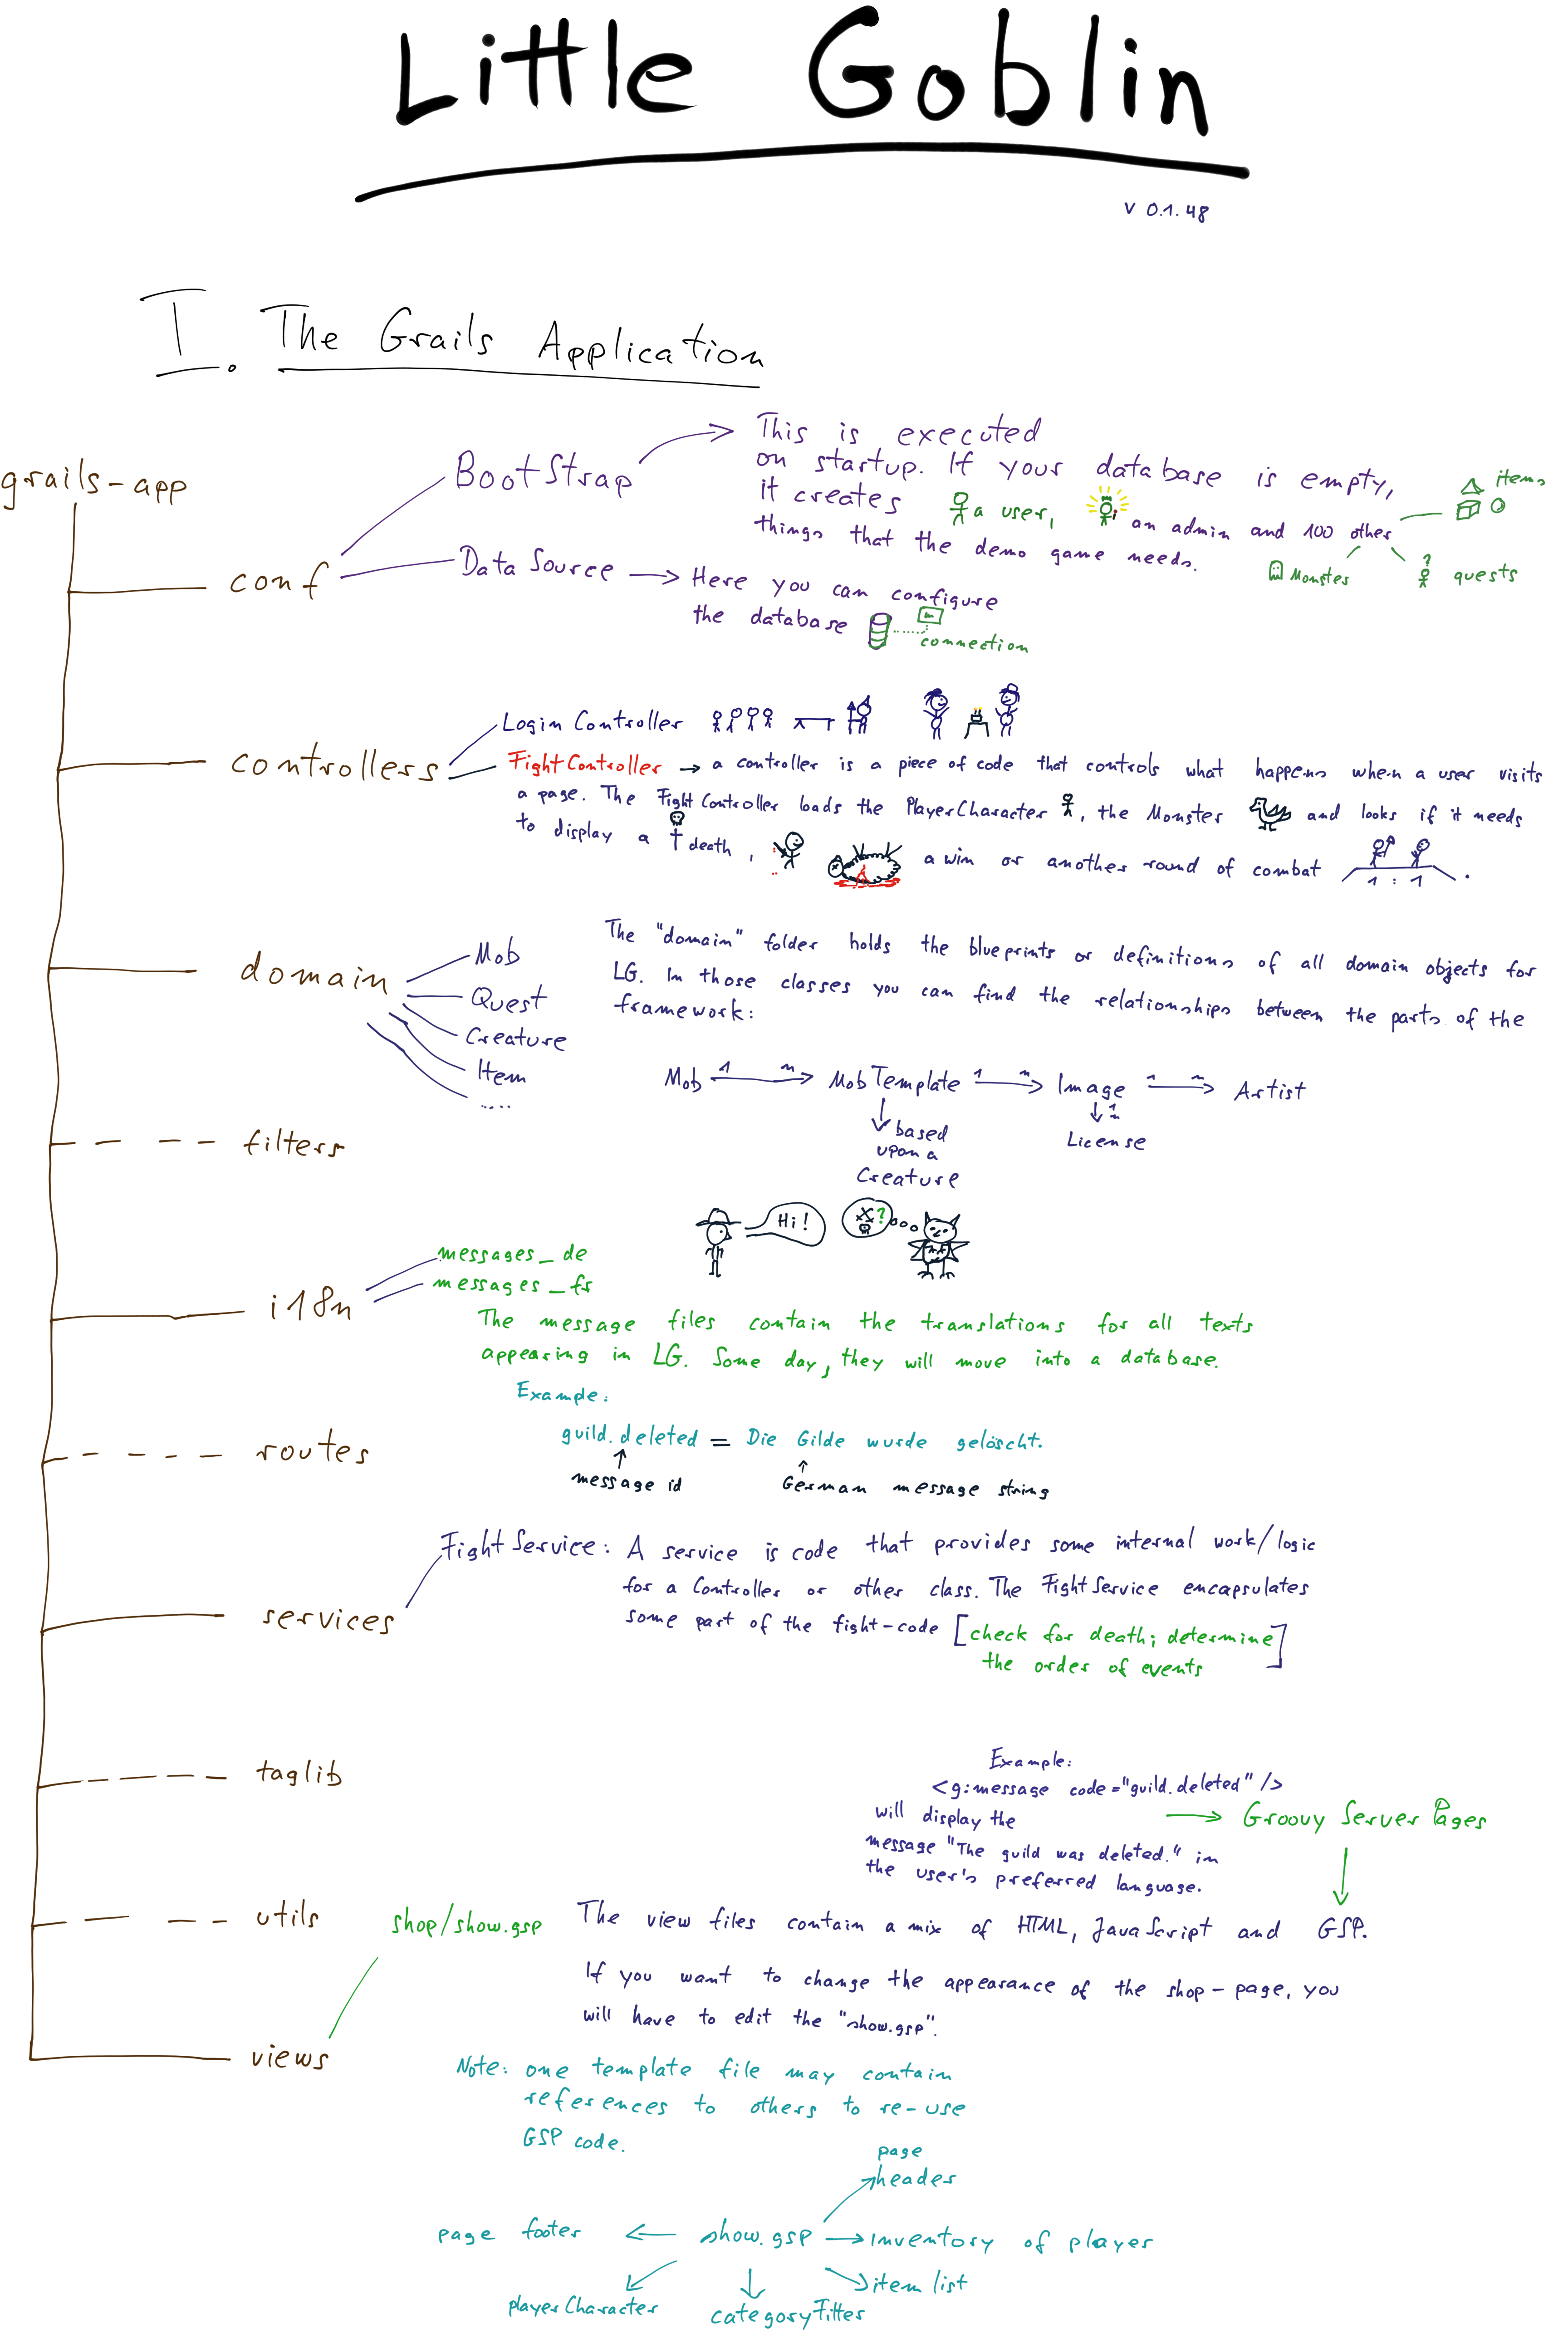 Little Goblin
v 0.1.48
I. The Grails Application
grails-app
conf
BootStrap
This is executed
on startup. If your database is empty,
it creates a user, an admin and 100 other
things that the demo game needs.
items
Monster
quests
DataSource
Here you can configure
the database
connection
controllers
Login Controller
FightController → a controller is a piece of code that controls what happens when a user visits
a page. The FightController loads the PlayerCharacter, the Monster and looks if it needs
to display a death, a win or another round of combat
1 : 1 .
domain
Mob
Quest
Creature
Item
.....
The "domain" folder holds the blueprints or definitions of all domain objects for
LG. In those classes you can find the relationships between the parts of the
framework:
Mob 1 n MobTemplate 1 n Image 1 n Artist
1
based
upon a
Creature
License
filters
Hi!
?
i18n
messages_de
messages_fr
The message files contain the translations for all texts
appearing in LG. Some day, they will move into a database.
Example:
guild.deleted = Die Gilde wurde gelöscht.
message id
German message string
routes
services
FightService: A service is code that provides some internal work/logic
for a Controller or other class. The FightService encapsulates
some part of the fight-code [check for death; determine
the order of events]
taglib
Example:
<g:message code="guild.deleted" />
will display the
message "The guild was deleted." in
the user's preferred language.
Groovy Server Pages
utils
shop/show.gsp
The view files contain a mix of HTML, JavaScript and GSP.
If you want to change the appearance of the shop-page, you
will have to edit the "show.gsp".
views
Note: one template file may contain
references to others to re-use
GSP code.
page
header
page footer
show.gsp
inventory of player
item list
playerCharacter
categoryFilter